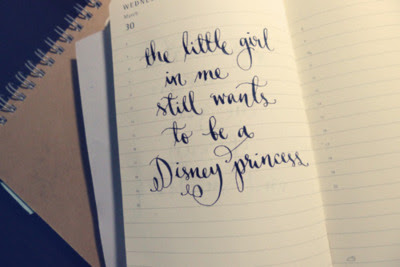 WEDNE
March
30
the little girl
in me
still wants
to be a
Disney princess